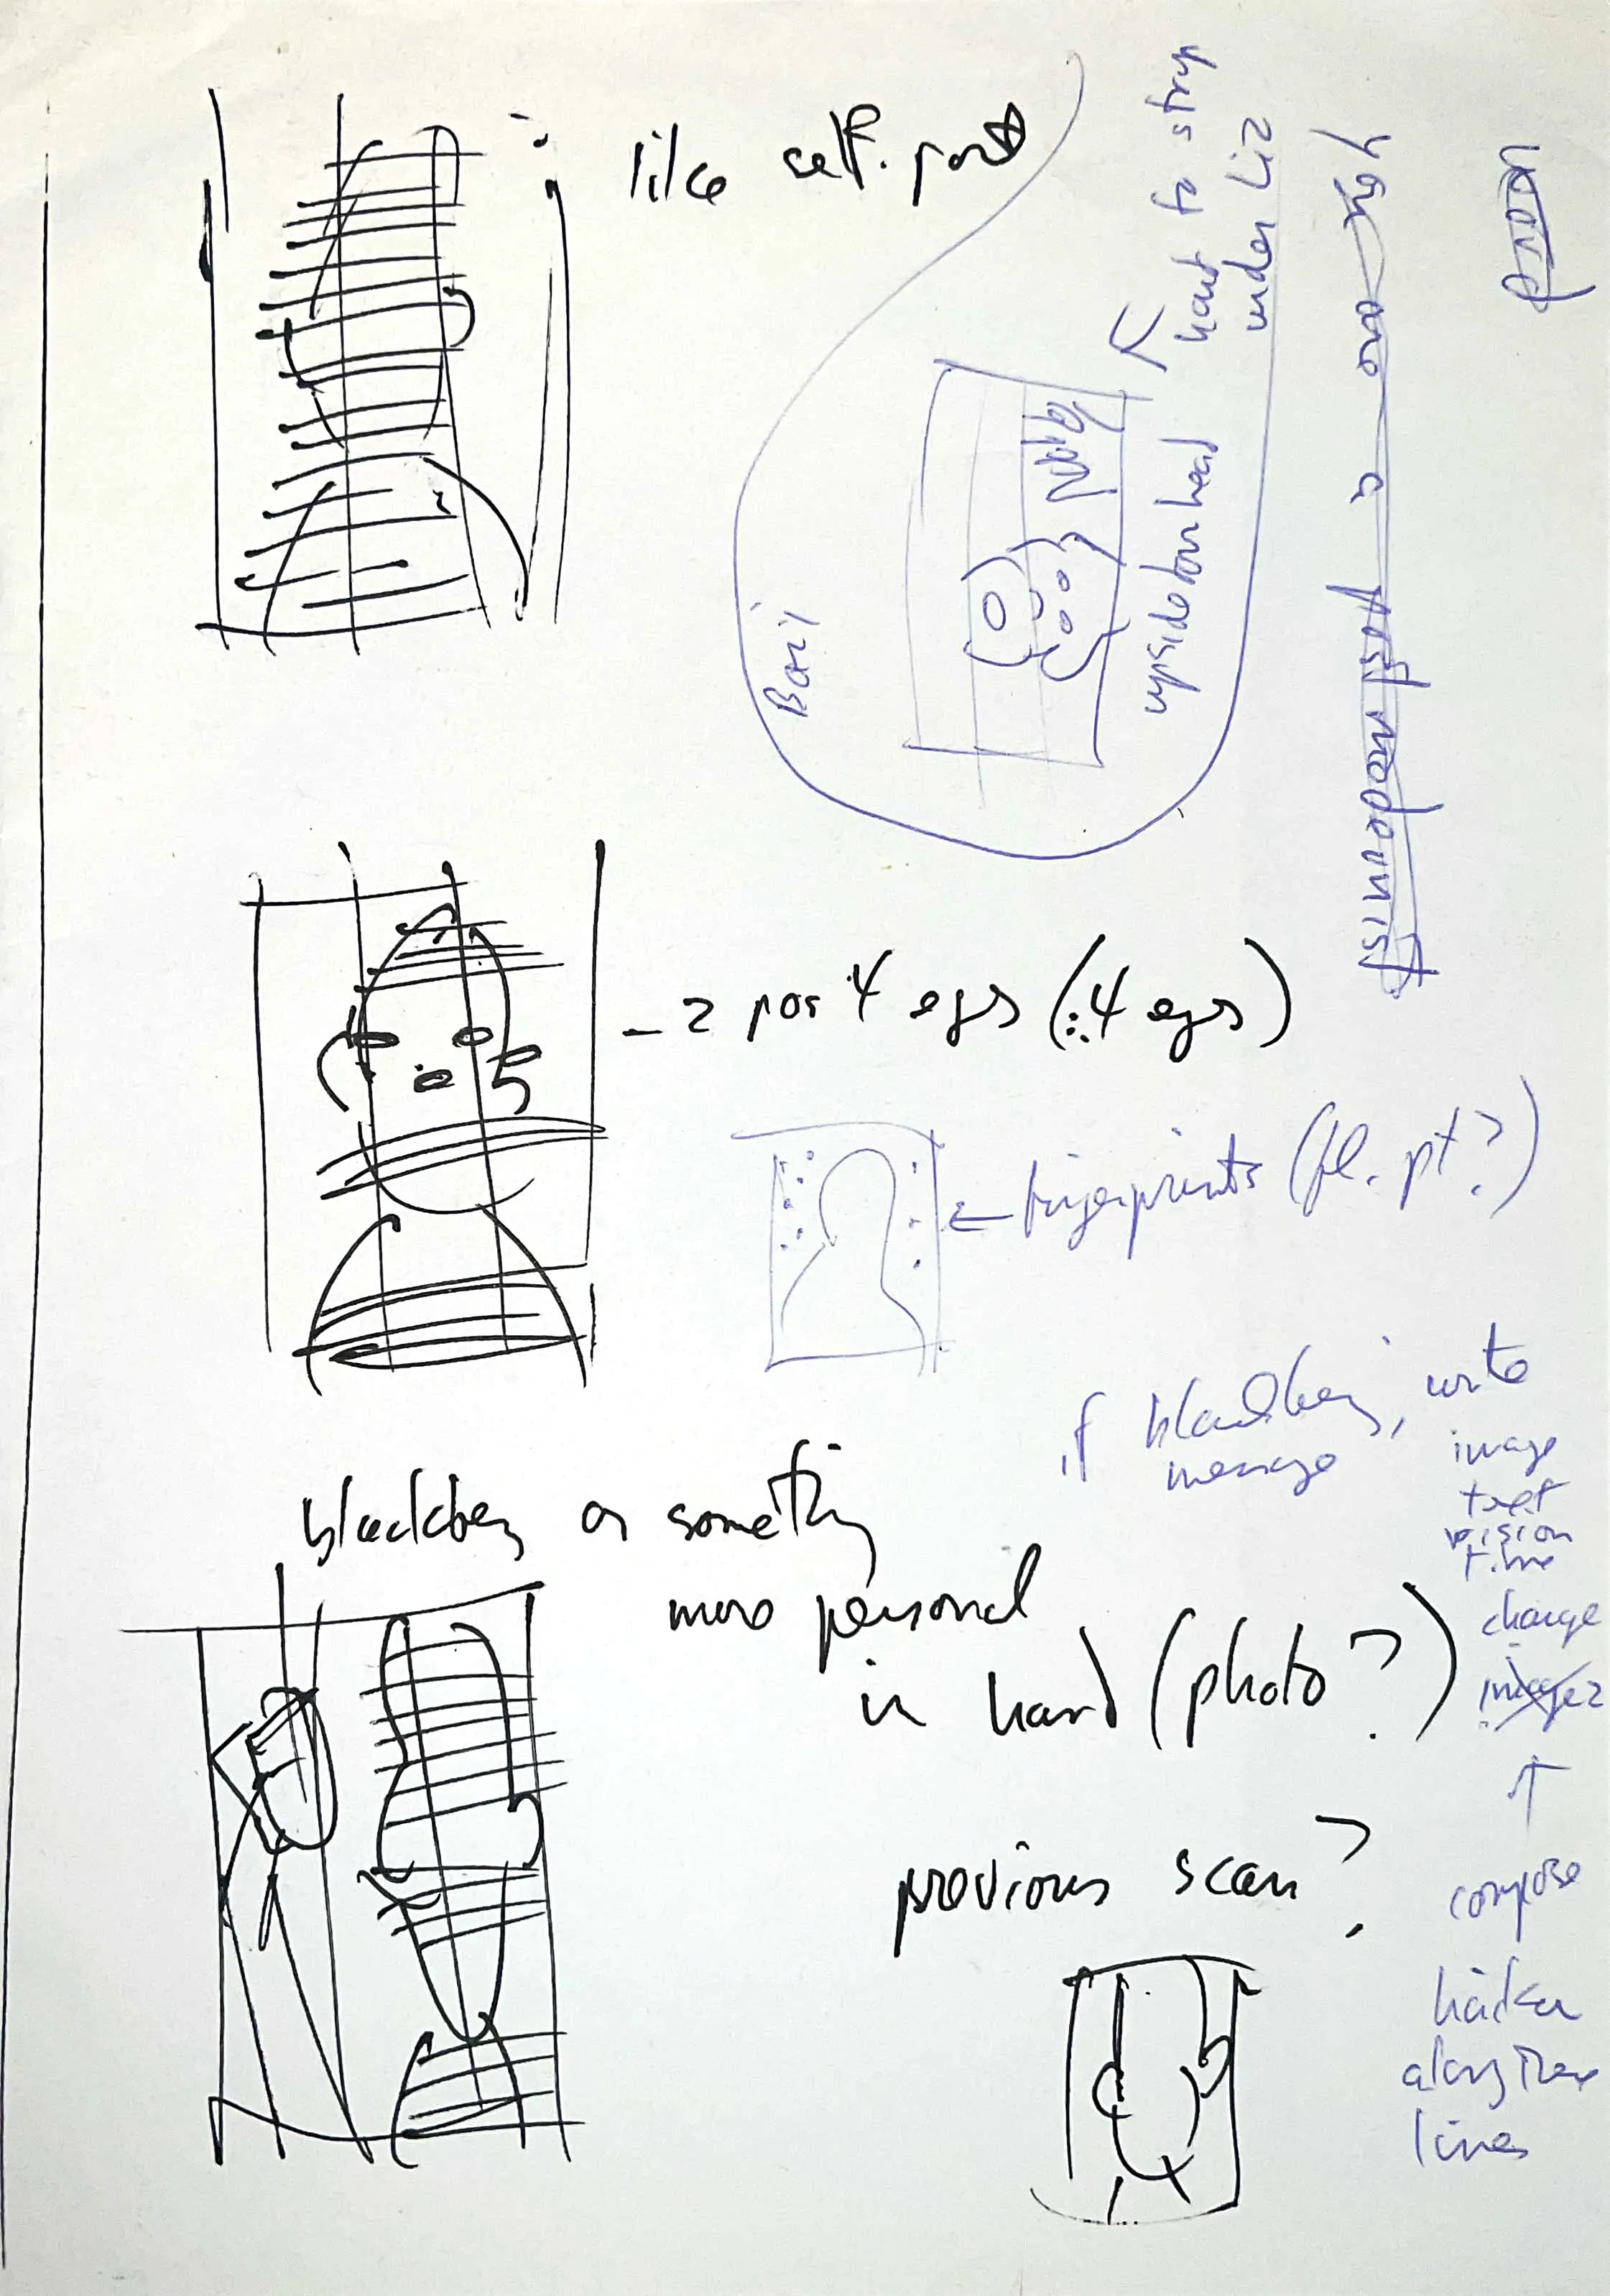 like self. port
Bari
upside down head
hard to strip
under Liz
You are a
post modernist
2 por 4 eyes (: 4 eyes)
← fingerprints (fl. pt?)
if blackberry, write
message
image
text
vision
time
change
images
↑
compose
haiku
along these
lines
blackberry or something
more personal
in hand (photo?)
previous scan?